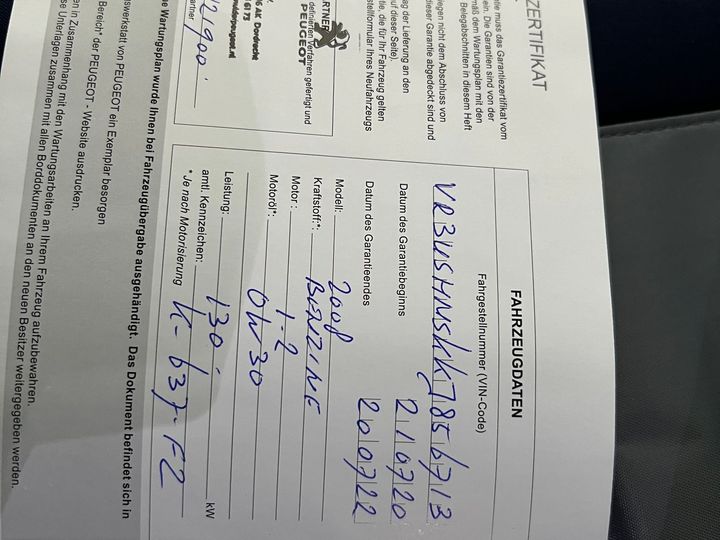 ZERTIFIKAT
tie muss das Garantiezertifikat vom
ein. Die Garantien sind von der
mäß dem Wartungsplan mit den
Belegabschnitten in diesem Heft
iegen nicht dem Abschluss von
dieser Garantie abgedeckt sind und
ag der Lieferung an den
uf dieser Seite).
tie, die für Ihr Fahrzeug gelten
stellformular Ihres Neufahrzeugs
PEUGEOT
definierten Verfahren gefertigt und
AK Dordrecht
6173
peugeot.nl
21900
artner
FAHRZEUGDATEN
Fahrgestellnummer (VIN-Code)
VR3USHNSKKJ856713
Datum des Garantiebeginns
210720
Datum des Garantieendes
200722
Modell: 2008
Kraftstoff*: BENZINE
Motor: 1.2
Motoröl*: 0W30
Leistung: 130 kW
amtl. Kennzeichen: K-637-FZ
* Je nach Motorisierung
e Wartungsplan wurde Ihnen bei Fahrzeugübergabe ausgehändigt. Das Dokument befindet sich in
swerkstatt von PEUGEOT ein Exemplar besorgen
Bereich* der PEUGEOT - Website ausdrucken.
en in Zusammenhang mit den Wartungsarbeiten an Ihrem Fahrzeug aufzubewahren.
se Unterlagen zusammen mit allen Borddokumenten an den neuen Besitzer weitergegeben werden.